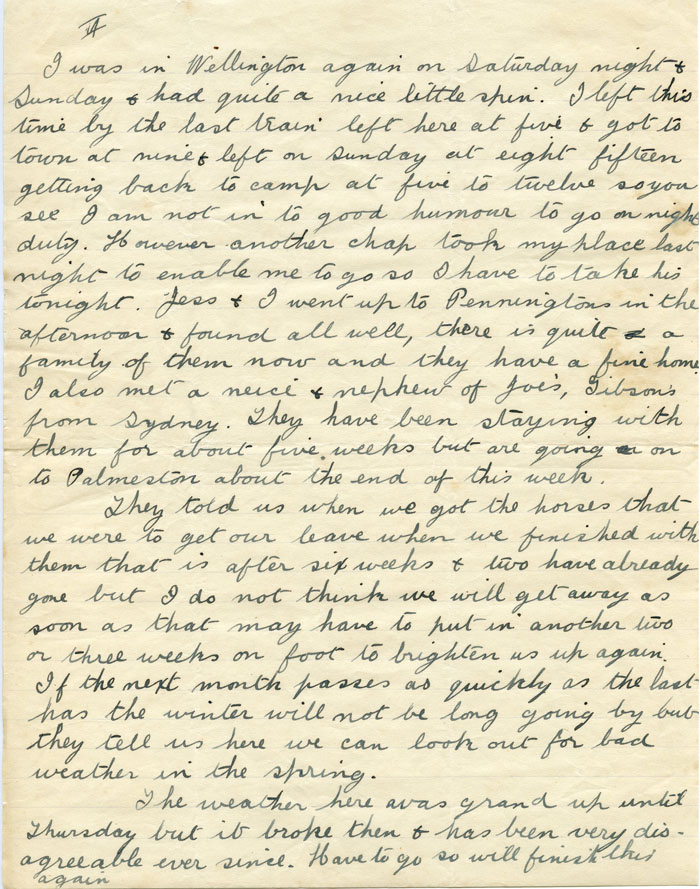 VI
I was in Wellington again on Saturday night &
Sunday & had quite a nice little spin. I left this
time by the last train left here at five & got to
town at nine & left on Sunday at eight fifteen
getting back to camp at five to twelve so you
see I am not in to good humour to go on night
duty. However another chap took my place last
night to enable me to go so I have to take his
tonight. Jess & I went up to Penningtons in the
afternoon & found all well, there is quite a
family of them now and they have a fine home
I also met a neice & nephew of Joe's, Gibsons
from Sydney. They have been staying with
them for about five weeks but are going on
to Palmeston about the end of this week.
They told us when we got the horses that
we were to get our leave when we finished with
them that is after six weeks & two have already
gone but I do not think we will get away as
soon as that may have to put in another two
or three weeks on foot to brighten us up again.
If the next month passes as quickly as the last
has the winter will not be long going by but
they tell us here we can look out for bad
weather in the spring.
The weather here was grand up until
Thursday but it broke then & has been very dis-
agreeable ever since. Have to go so will finish this
again